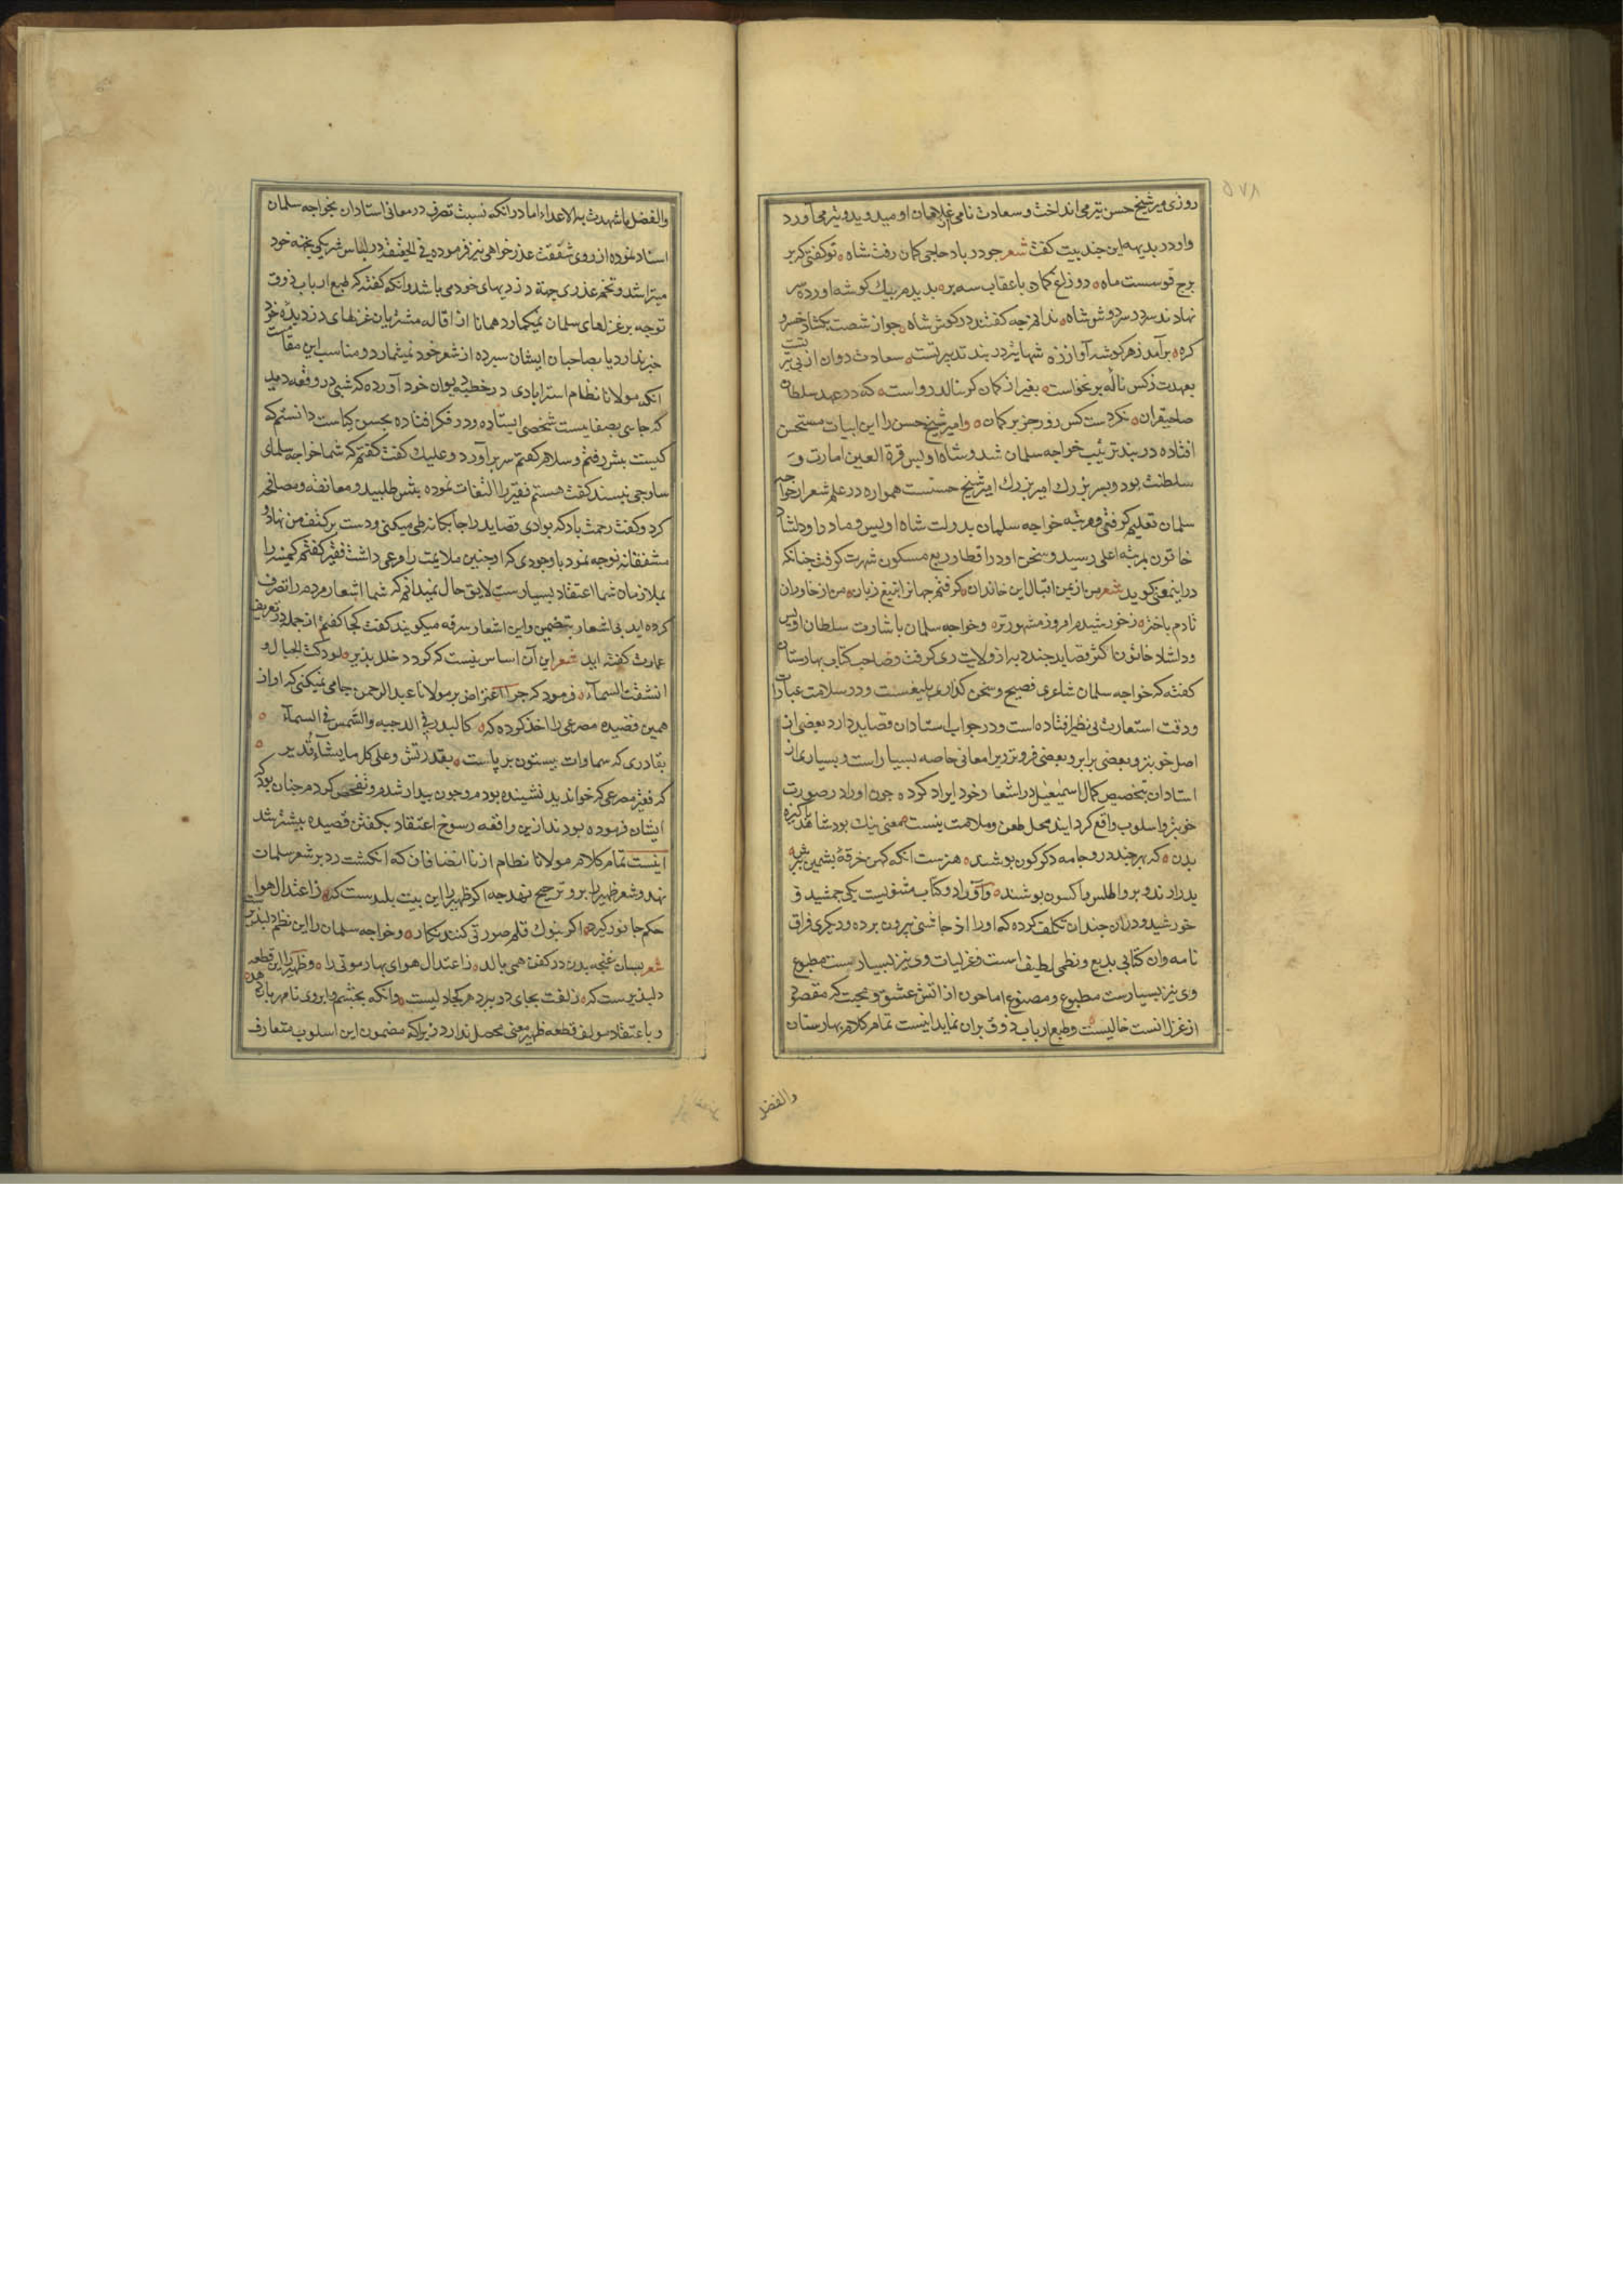 ۵۷۸
روزی میر شیخ حسن تیر می انداخت و سعادت نامی از غلامان او میدوید و تیر می آورد
و او در بدیهه این چند بیت کفت شعر جو در باد حاجی کمان رفت شاه تو کفتی که بر
برج قوسست ماه دو زاغ کمان با عقاب سه پر بدیدم بیك کوشه آورده سر
نهادند سر بر سر دوش شاه ندانم چه کفتند در کوش شاه جو از شصت بکشاد خسرو
کره برآمد ز هر کوشه آواز زه شها تیر در بند تدبیر تست سعادت دوان از پی تیر تست
بعهدت ز کس ناله بر نخواست بغیر از کمان کر بنالد رواست که در عهد سلطان
صاحبقران نکردست کس زور جز بر کمان و امیر شیخ حسن را این ابیات مستحسن
افتاده در بند تربیت خواجه سلمان شد و شاه اویس قرة العین امارت و
سلطنت بود و پسر بزرك امیر بزرك امیر شیخ حسنست همواره در علم شعر از خواجه
سلمان تعلیم کرفتی و مرتبه خواجه سلمان بدولت شاه اویس و مادر او دلشاد
خاتون بمرتبه اعلی رسید و سخن او در اقطار ربع مسکون شهرت کرفت جنانکه
در اینمعنی کوید شعر من از یمن اقبال این خاندان کرفتم جهانرا بتیغ زبان من از خاوران
تا در باختر ز خورشیدم امروز مشهورتر و خواجه سلمان باشارت سلطان اویس
و دلشاد خاتون اکثر قصاید جند به از ولایت ری کرفت و صاحب کتاب بهارستان
کفته که خواجه سلمان شاعری فصیح و سخن کذاری بلیغست و در سلامت عبارات
و دقت استعارت بی نظیر افتاده است و در جواب استادان قصاید دارد بعضی از
اصل خوبتر و بعضی برابر و بعضی فروتر و یرا معانی خاصه بسیار است و بسیاری از
استادان بتخصیص کمال اسمعیل در اشعار خود ایراد کرده جون او را در صورت
خوبتر و اسلوب واقع کردایند محل طعن و ملامت نیست معنی نیك بود شاهد پاکیزه
بدن که بهر چند درو جامه دکرکون بوشند هنرست انکه کهن خرقه پشمین ز برش
بدر ارند و برو اطلس و اکسون بوشند و او را دو کتاب مثنویست یکی جمشید و
خورشید و در ان جندان تکلف کرده که او را از جاشنی بیرون برده و دیکری فراق
نامه وان کتابی بدیع و نظمی لطیف است و غزلیات وی نیز بسیارست مطبوع
وی نیز بسیارست مطبوع و مصنوع اما جون از اتش عشق و محبت که مقصود
از غزل انست خالیست و طبع ارباب ذوق بران نماید اینست تمام کلام بهارستان
والفضل
والفضل ما شهدت به الاعداء اما در انکه نسبت تصرف در معانی استادان بخواجه سلمان
اسناد نموده از روی شفقت عذر خواهی نیز فرموده فی الحقیقه در لباس شریکی بخیه خود
میتراشد و تخم عذری جهة دزدیهای خود می باشد وانکه کفته که طبع ارباب ذوق
توجه بر غزلهای سلمان نمیکمارد همانا از اقاله مشتریان غزلهای دزدیده خود
خبر ندارد یا بصاحبان ایشان سپرده از شعر خود نمیشمارد و مناسب این مقامست
انکه مولانا نظام استرابادی در خطبه دیوان خود آورده که شبی در واقعه دید
که جاسی بصفایست شخصی ایستاده و در فکر افتاده بحسن کیاست دانستم که
کیست پیش رفتم و سلام کفتم سر بر آورد و علیك کفت کفتم که شما خواجه سلمان
ساوجی نیسید کفت هستم فقیر را التفات نموده پیش طلبید و معانقه و مصافحه
کرد و کفت رحمت باد که بوادی قصاید را جابکانه طی میکنی و دست بر کتف من نهاد و
مشفقانه توجه نمود با وجودی که اوجنین ملایمت را مرعی داشت فقیر کفتم کمینه را
بملازمان شما اعتقاد بسیارست لایق حال نمیدانم که شما اشعار مردم را تصرف
کرده اید بی اشعار بتضمین و این اشعار سرقه میکویند کفت کجا کفتم از جمله در تعریف
عمارت کفته اید شعر این آن اساس نیست که کردد خلل پذیر لو دکت الجبال و
انشقت السماء فرمود که جرا اعتراض بر مولانا عبدالرحمن جامی نمیکنی که او از
همین قصیده مصرعی را اخذ کرده که کالبدر فی الدجیه والشمس فی السماء
بقادری که سماوات بیستون بر پاست بقدرتش و علی کل ما یشاء قدیر
که فقیر مصرعی که خواندید نشینده بودم و جون بیدار شدم و تفحص کردم جنان بود که
ایشان فرموده بودند از این واقعه رسوخ اعتقاد بکفتن قصیده بیشتر شد
اینست تمام کلام مولانا نظام از نا انصافان که انکشت رد بر شعر سلمان
نهد و شعر ظهیر را برو ترجیح نهد جه اکر ظهیر را این بیت بلندست که ز اعتدال هوا
حکم جانور کیرد اکر بنوك قلم صورتی کنند نکار و خواجه سلمان را این نظم دلپذیرست
شعر بسان غنجه بدن در کفن همی بالد ز اعتدال هوای بهار موتی را و ظهیر را این قطعه
دلپذیرست که زلفت بجای دو ببرد هر کجا دلیست وانکه بجشم و ابروی نامهربان دهد
و باعتقاد مولف قطعه ظهیر معنی محصل ندارد زیرا که مضمون این اسلوب متعارف